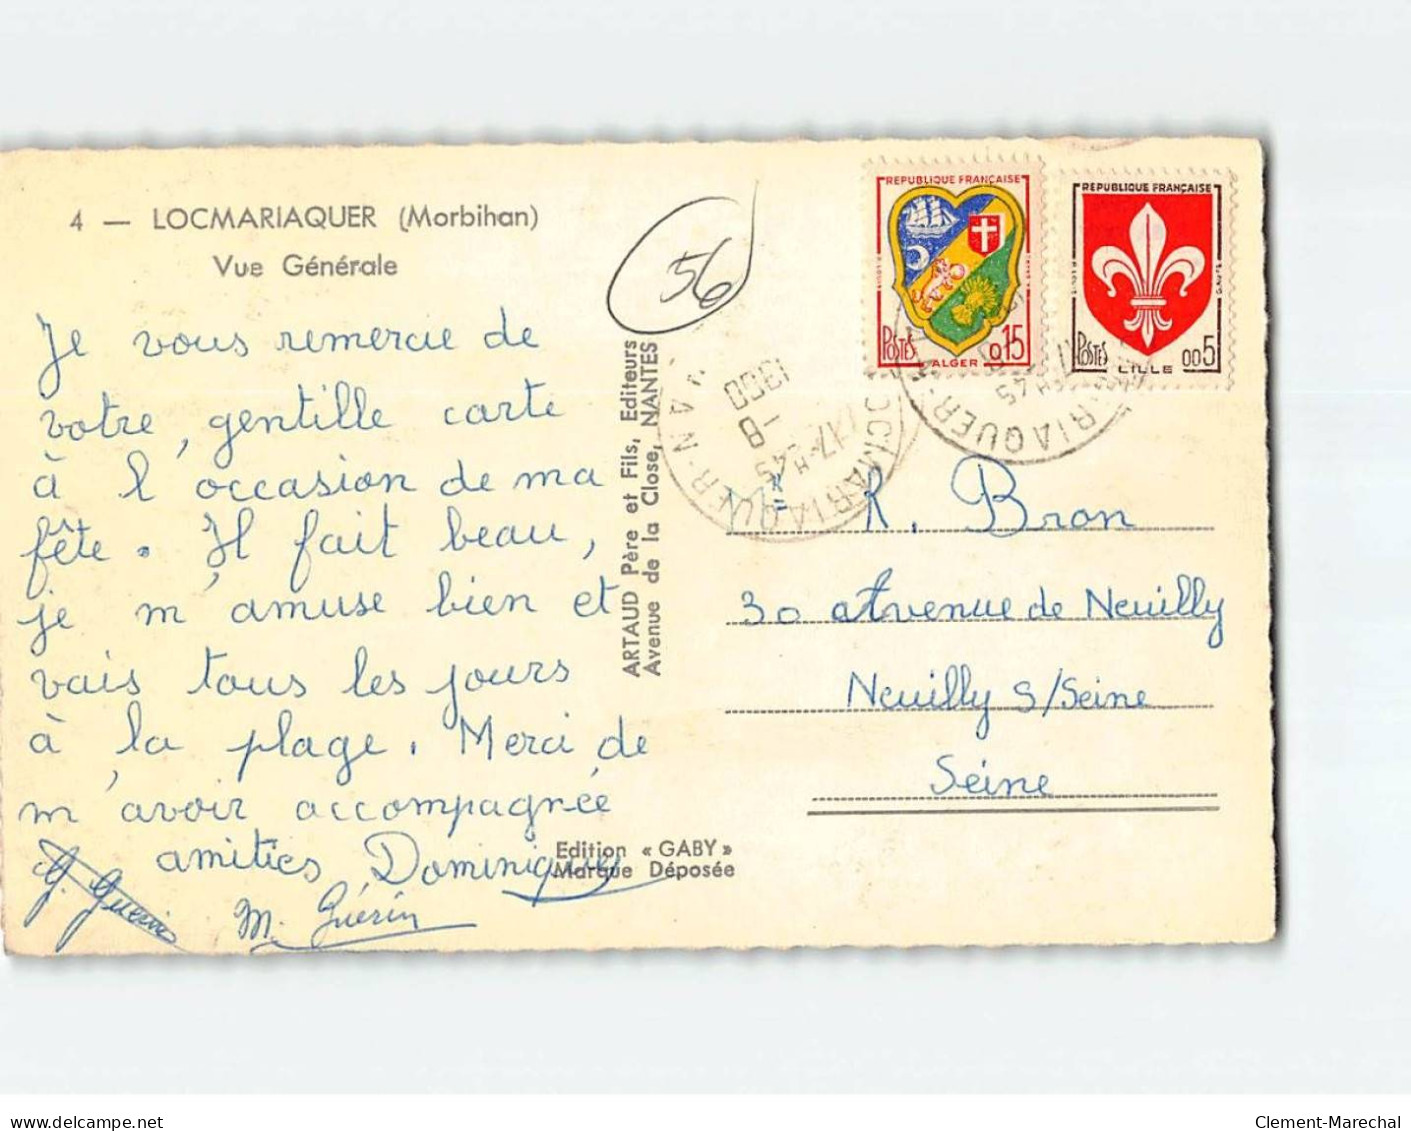 4 — LOCMARIAQUER (Morbihan)
Vue Générale
Je vous remercie de
votre gentille carte
à l'occasion de ma
fête. Il fait beau,
je m'amuse bien et
vais tous les jours
à la plage. Merci de
m'avoir accompagnée
amitiés Dominique
G. Guérin
M. Guérin
56
ARTAUD Père et Fils, Editeurs
Avenue de la Close, NANTES
Edition « GABY »
Marque Déposée
REPUBLIQUE FRANÇAISE
POSTES 0,15
ALGER
REPUBLIQUE FRANÇAISE
POSTES 0,05
LILLE
LOCMARIAQUER
17 H 45
-8
R. Bron
30 Avenue de Neuilly
Neuilly s/Seine
Seine
delcampe.net
Clement-Marechal